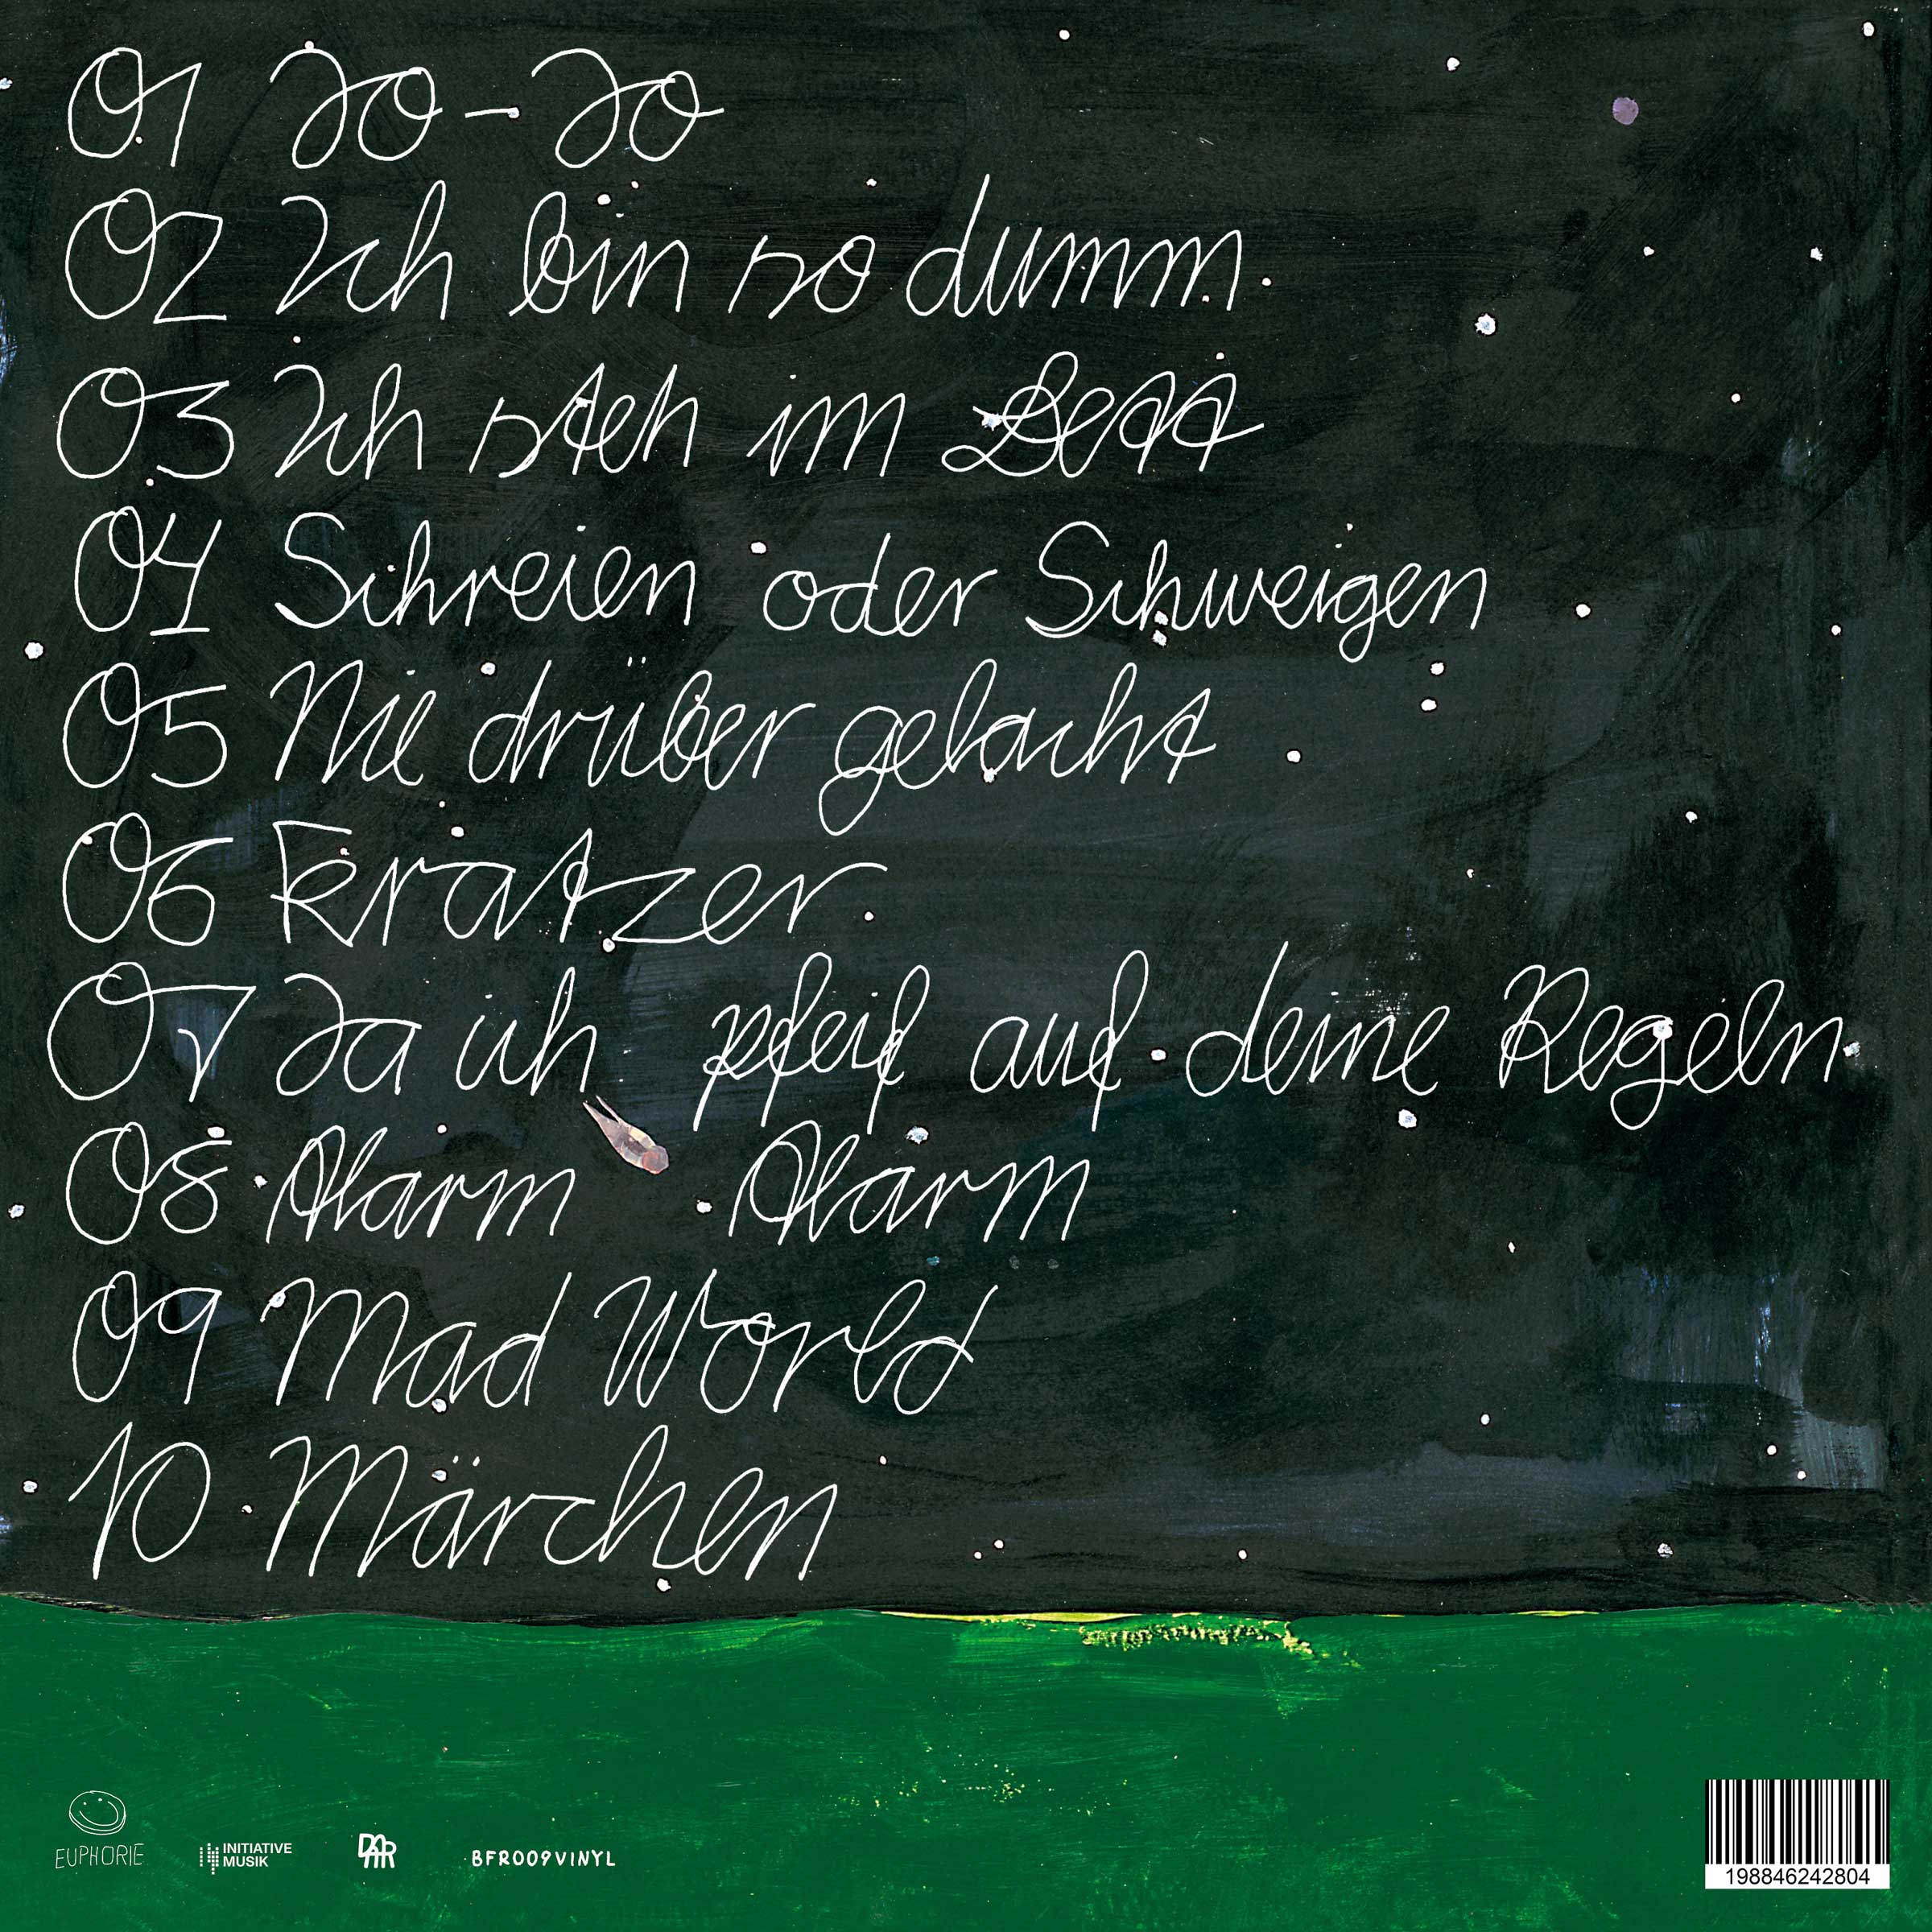 01 Jo-Jo
02 Ich bin so dumm
03 Ich steh im Bett
04 Schreien oder Schweigen
05 Nie drüber gelacht
06 Kratzer
07 Ja ich pfeif auf deine Regeln
08 Alarm Alarm
09 Mad World
10 Märchen
EUPHORIE
INITIATIVE
MUSIK
BFR009VINYL
198846242804